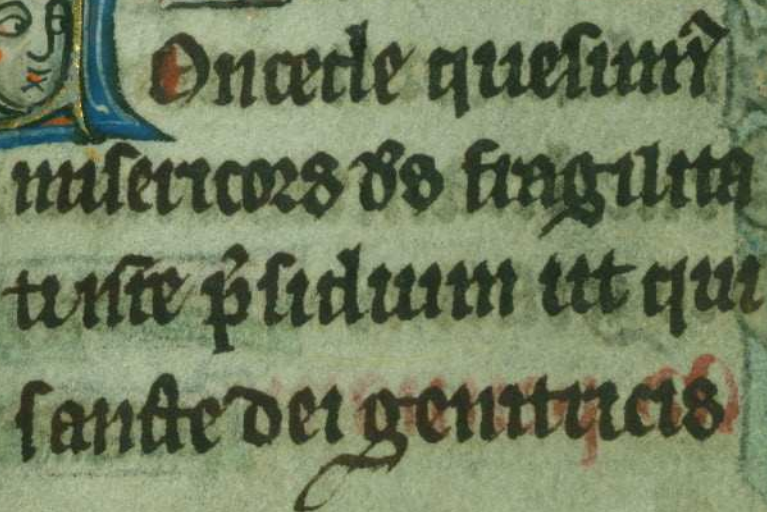 Oncede quesum᷒
misericors ds̄ fragilita
ti nr̄e p̄sidium ut qui
sancte dei genitricis